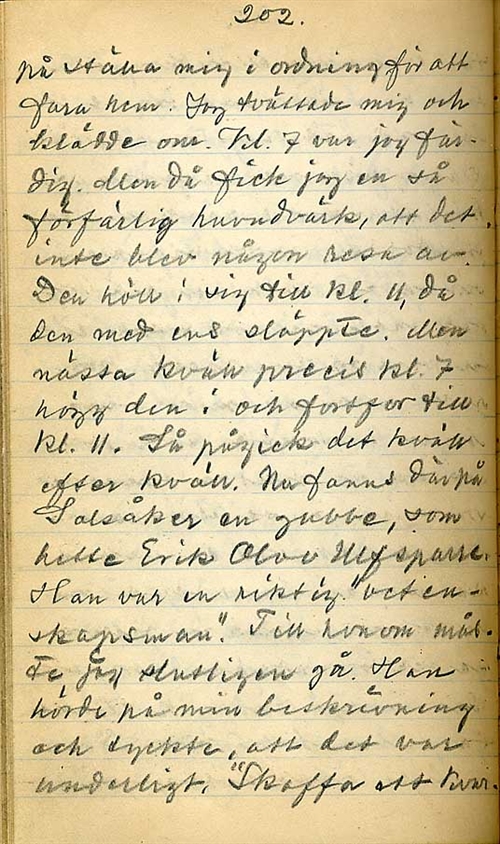 202.
på ställa mig i ordning för att
fara hem. Jag tvättade mig och
klädde om. Kl. 7 var jag fär-
dig. Men då fick jag en så
förfärlig huvudvärk, att det
inte blev någon resa av.
Den höll i sig till kl. 11, då
den med ens släppte. Men
nästa kväll precis kl. 7
högg den i och fortfor till
kl. 11. Så pågick det kväll
efter kväll. Nu fanns där på
Solsåker en gubbe, som
hette Erik Olov Ulfsparre.
Han var en riktig "veten-
skapsman". Till honom mås-
te jag slutligen gå. Han
hörde på min beskrivning
och tyckte, att det var
underligt. "Skaffa ett kvar-